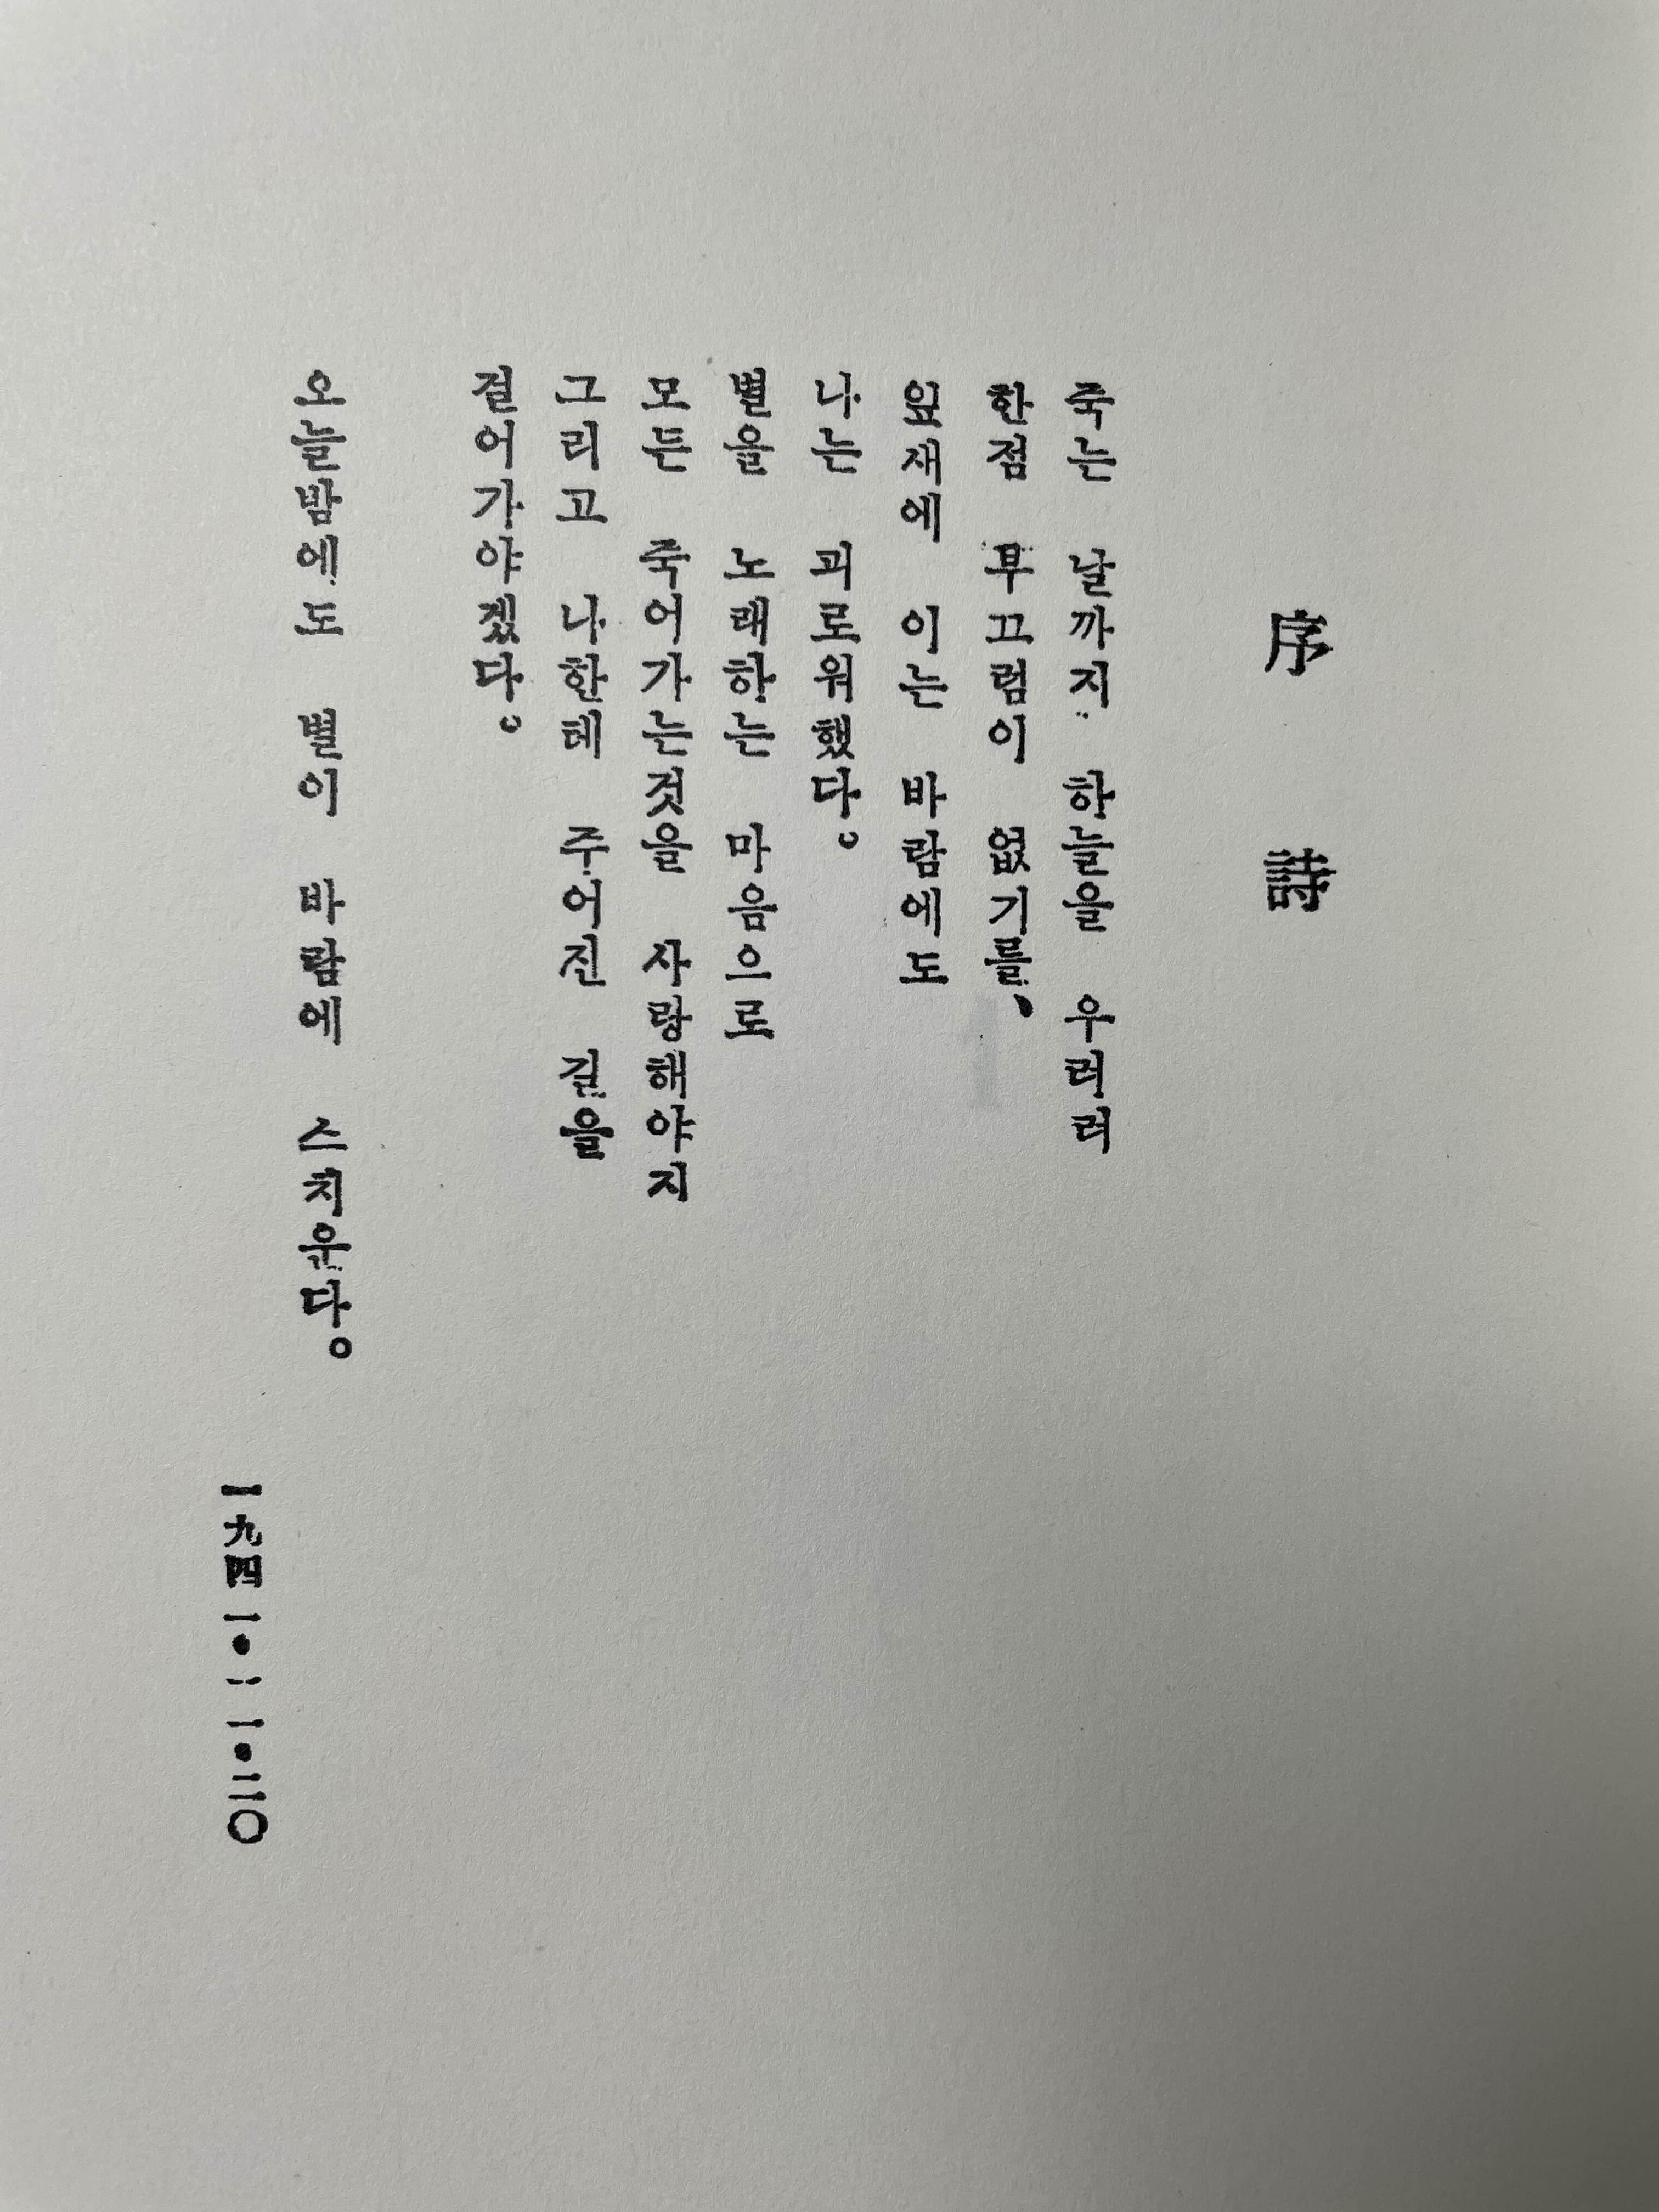 序詩
죽는 날까지 하늘을 우러러
한점 부끄럼이 없기를、
잎새에 이는 바람에도
나는 괴로워했다。
별을 노래하는 마음으로
모든 죽어가는것을 사랑해야지
그리고 나한테 주어진 길을
걸어가야겠다。
오늘밤에도 별이 바람에 스치운다。
一九四一•一一•二〇